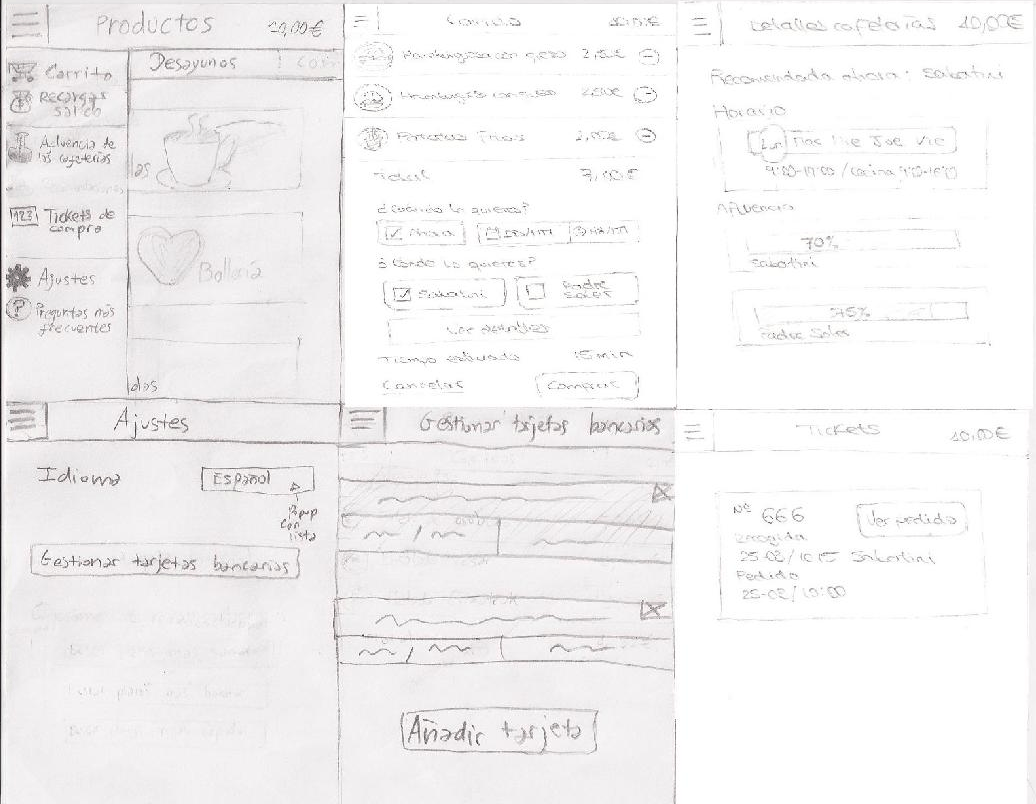 Productos 10,00€
Carrito
Recargas
saldo
Afluencia de
las cafeterías
Tickets de
compra
Ajustes
Preguntas más
frecuentes
Desayunos
Bollería
Carrito 10,00€
Hamburguesa con queso
Patatas fritas
Total 7,00€
¿Cuándo lo quieres?
Ahora DD/MM HH:MM
¿Dónde lo quieres?
Sabatini Padre
Soler
Ver detalles
Tiempo estimado 15 min
Cancelar Comprar
Detalles cafeterías 10,00€
Recomendada ahora: Sabatini
Horario
Lun Mar Mie Jue Vie
Afluencia
70%
Sabatini
45%
Padre Soler
Ajustes
Idioma Español
Popup
con
lista
Gestionar tarjetas bancarias
Gestionar tarjetas bancarias
Añadir tarjeta
Tickets 10,00€
Nº 666 Ver pedido
Recogida
25-02/10:15 Sabatini
Pedido
25-02/10:00